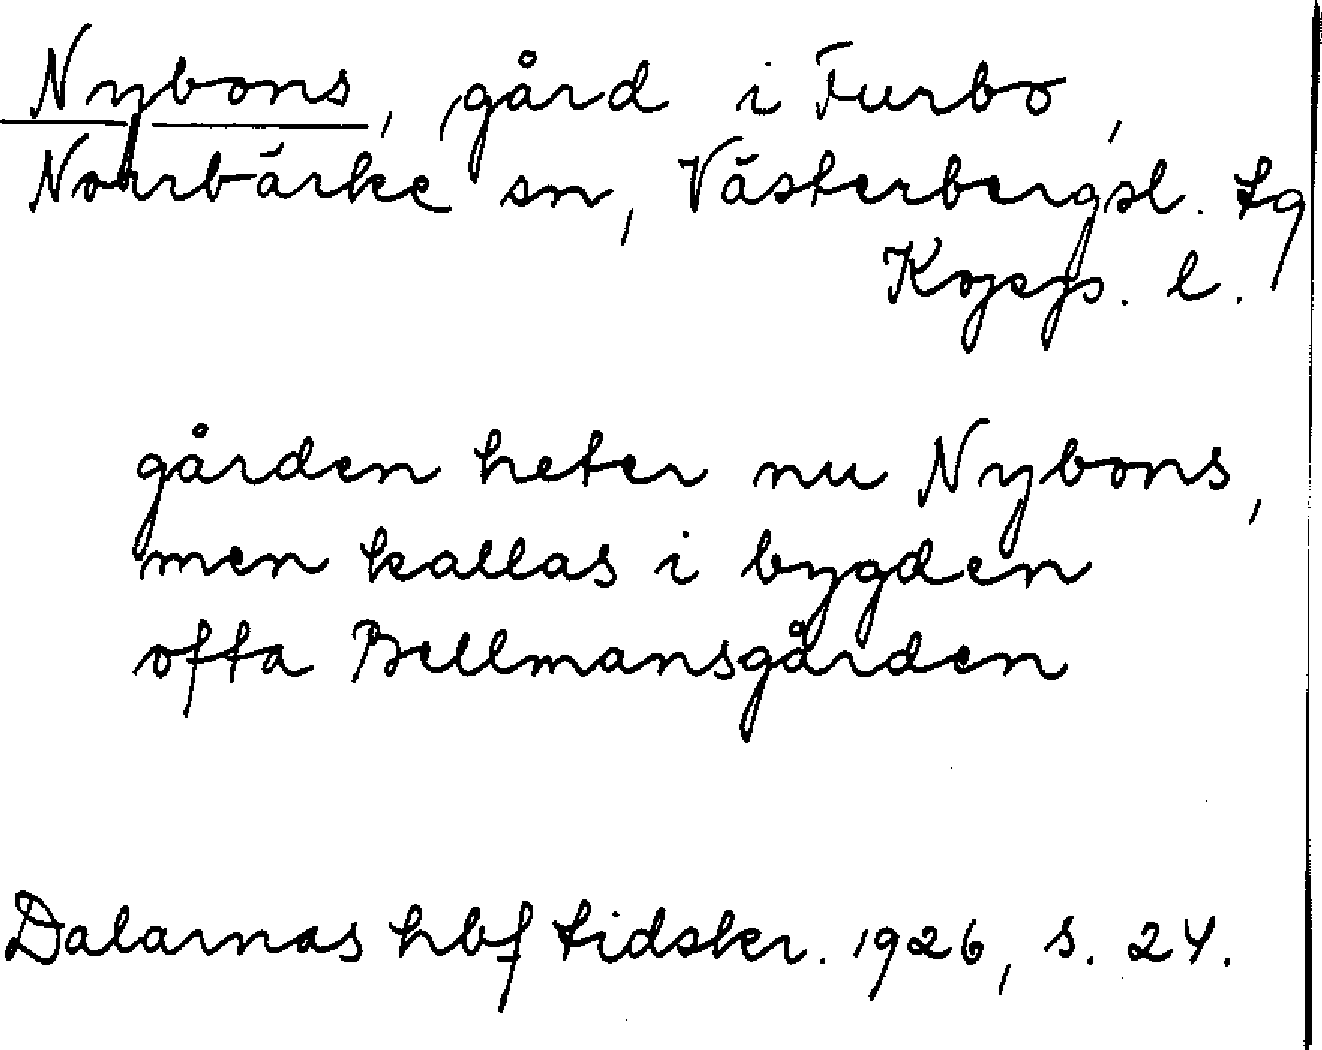 Nybons, gård i Furbo,
Norrbärke sn, Västerbergsl. tg
Kopp. l.
gården heter nu Nybons,
men kallas i bygden
ofta Bellmansgården
Dalarnas hbf tidskr. 1926, s. 24.